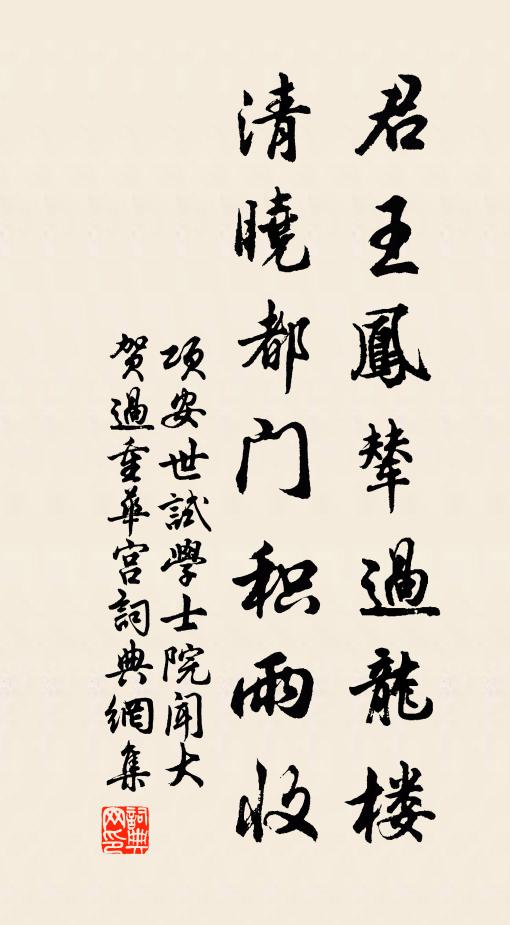 君王鳳輦過龍楼
清曉都门积雨收
项安世試學士院闻大
贺過重華宫詞典網集
詞典网印